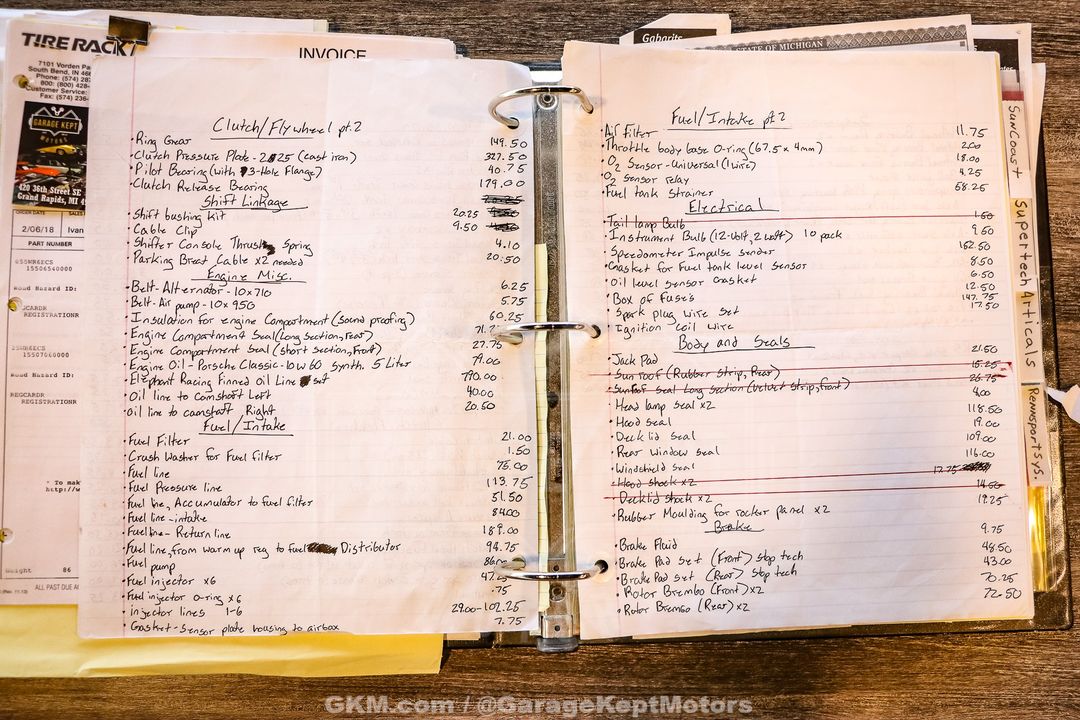 TIRE RACK
INVOICE
7101 Vorden Pa
South Bend, IN 466
Phone: (574) 287
800: (800) 428-
Customer Service:
Fax: (574) 236-
GARAGE KEPT
MOTORS
420 36th Street SE
Grand Rapids, MI 4
2/06/18 Ivan
PART NUMBER
15506540000
Road Hazard ID:
REGISTRATIONR
15507060000
Road Hazard ID:
REGCARDR
REGISTRATIONR
* To mak
http://w
Weight 86
ALL PAST DUE A
Clutch/Flywheel pt.2
• Ring Gear 149.50
• Clutch Pressure Plate - 225 (cast iron) 327.50
• Pilot Bearing (with 3-Hole Flange) 40.75
• Clutch Release Bearing 179.00
Shift Linkage
• Shift bushing kit 20.25
• Cable Clip 9.50
• Shifter Console Thrust Spring 4.10
• Parking Breat Cable x2 needed 20.50
Engine Misc.
• Belt-Alternator - 10x710 6.25
• Belt-Air pump - 10x950 5.75
• Insulation for engine Compartment (sound proofing) 60.25
• Engine Compartment Seal (Long section, rear) 71.
• Engine Compartment Seal (short section, Front) 27.75
• Engine Oil - Porsche Classic - 10w60 Synth. 5 Liter 79.00
• Elephant Racing Finned Oil Line set 790.00
• Oil line to Camshaft Left 40.00
• oil line to camshaft Right 20.50
Fuel/Intake
• Fuel Filter 21.00
• Crush Washer for Fuel filter 1.50
• Fuel line 75.00
• Fuel Pressure line 113.75
• Fuel line, Accumulator to fuel filter 51.50
• Fuel line - intake 84.00
• Fuel line - Return line 189.00
• Fuel line, from warm up reg to fuel Distributor 94.75
• Fuel pump 86
• Fuel injector x6 47.25
• Fuel injector O-ring x6 .75
• injector lines 1-6 29.00-102.25
• Gasket - Sensor plate housing to airbox 7.75
Gabarits
STATE OF MICHIGAN
Fuel/Intake pt 2
• Air filter 11.75
• Throttle body base O-ring (67.5 x 4mm) 2.00
• O2 Sensor - Universal (1 wire) 18.00
• O2 Sensor relay 4.25
• Fuel tank strainer 58.25
Electrical
• Tail lamp Bulb 1.50
• Instrument Bulb (12-Volt, 2 watt) 10 pack 9.50
• Speedometer Impulse sender 162.50
• Gasket for Fuel tank level Sensor 8.50
• Oil level sensor Gasket 6.50
• Box of Fuse's 12.50
• Spark plug wire set 147.75
• Ignition Coil Wire 17.50
Body and Seals
• Jack Pad 21.50
• Sunroof (Rubber Strip, Rear) 15.25
• Sunroof Seal Long section (Velvet strip, front) 26.75
• Head lamp seal x2 4.00
• Hood seal 118.50
• Deck lid seal 19.00
• Rear Window seal 109.00
• Windshield seal 116.00
• Hood shock x2 17.75
• Decklid shock x2 14.50
• Rubber Moulding for rocker panel x2 19.25
Brake
• Brake Fluid 9.75
• Brake Pad set (Front) Stop tech 48.50
• Brake Pad set (Rear) Stop tech 43.00
• Rotor Brembo (Front) x2 70.25
• Rotor Brembo (Rear) x2 72.50
SunCoast
Supertech
Articals
Rennsportsys.
GKM.com / @GarageKeptMotors